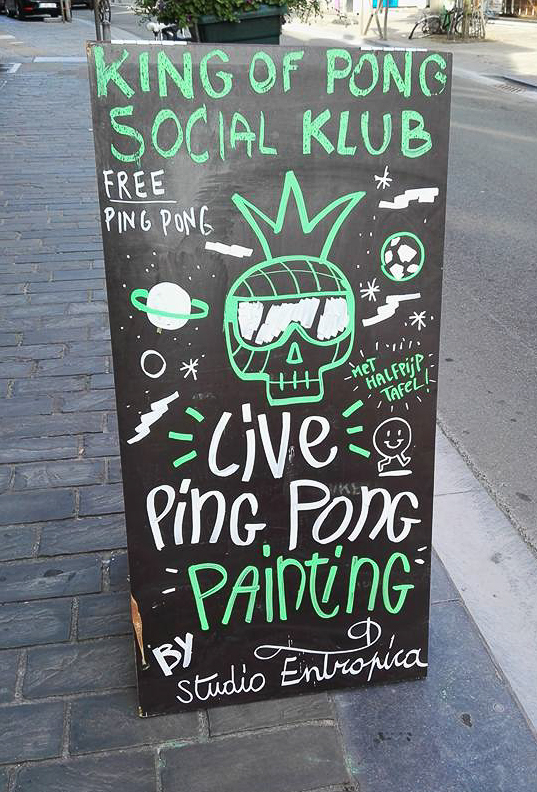 KING OF PONG
SOCIAL KLUB
FREE
PING PONG
MET
HALFPIJP
TAFEL!
LIVE
PING PONG
PAINTING
BY
Studio Entropica